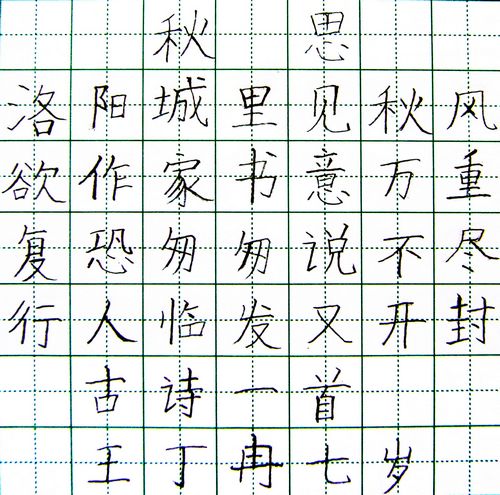 秋思
洛阳城里见秋风
欲作家书意万重
复恐匆匆说不尽
行人临发又开封
古诗一首
王丁冉七岁